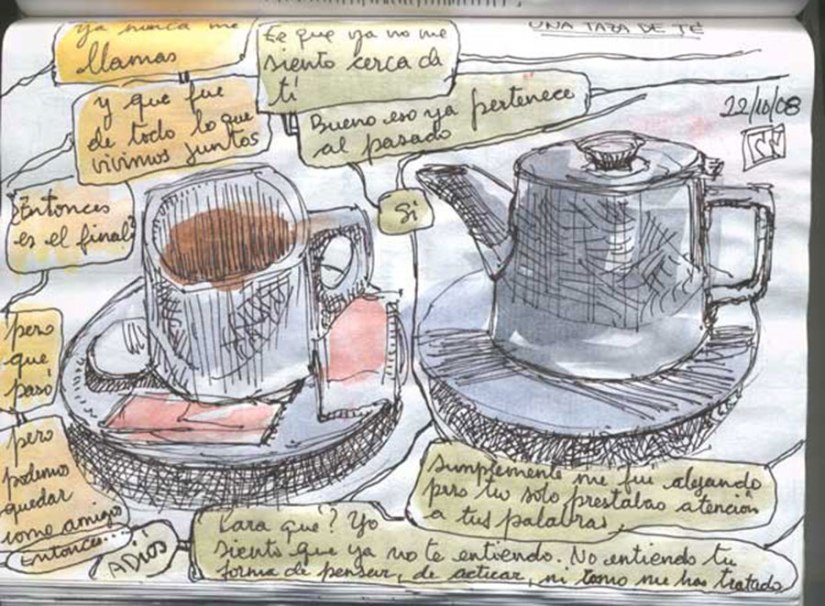 UNA TAZA DE TÉ
22/10/08
ya nunca me
llamas
Es que ya no me
siento cerca de
ti
y que fue
de todo lo que
vivimos juntos
Bueno eso ya pertenece
al pasado
¿Entonces
es el final?
Si
pero
que
pasó
Simplemente me fui alejando
pero tu solo prestabas atención
a tus palabras.
pero
podemos
quedar
como amigos
Para que? Yo
siento que ya no te entiendo. No entiendo tu
forma de pensar, de actuar, ni como me has tratado
Entonces...
ADIÓS